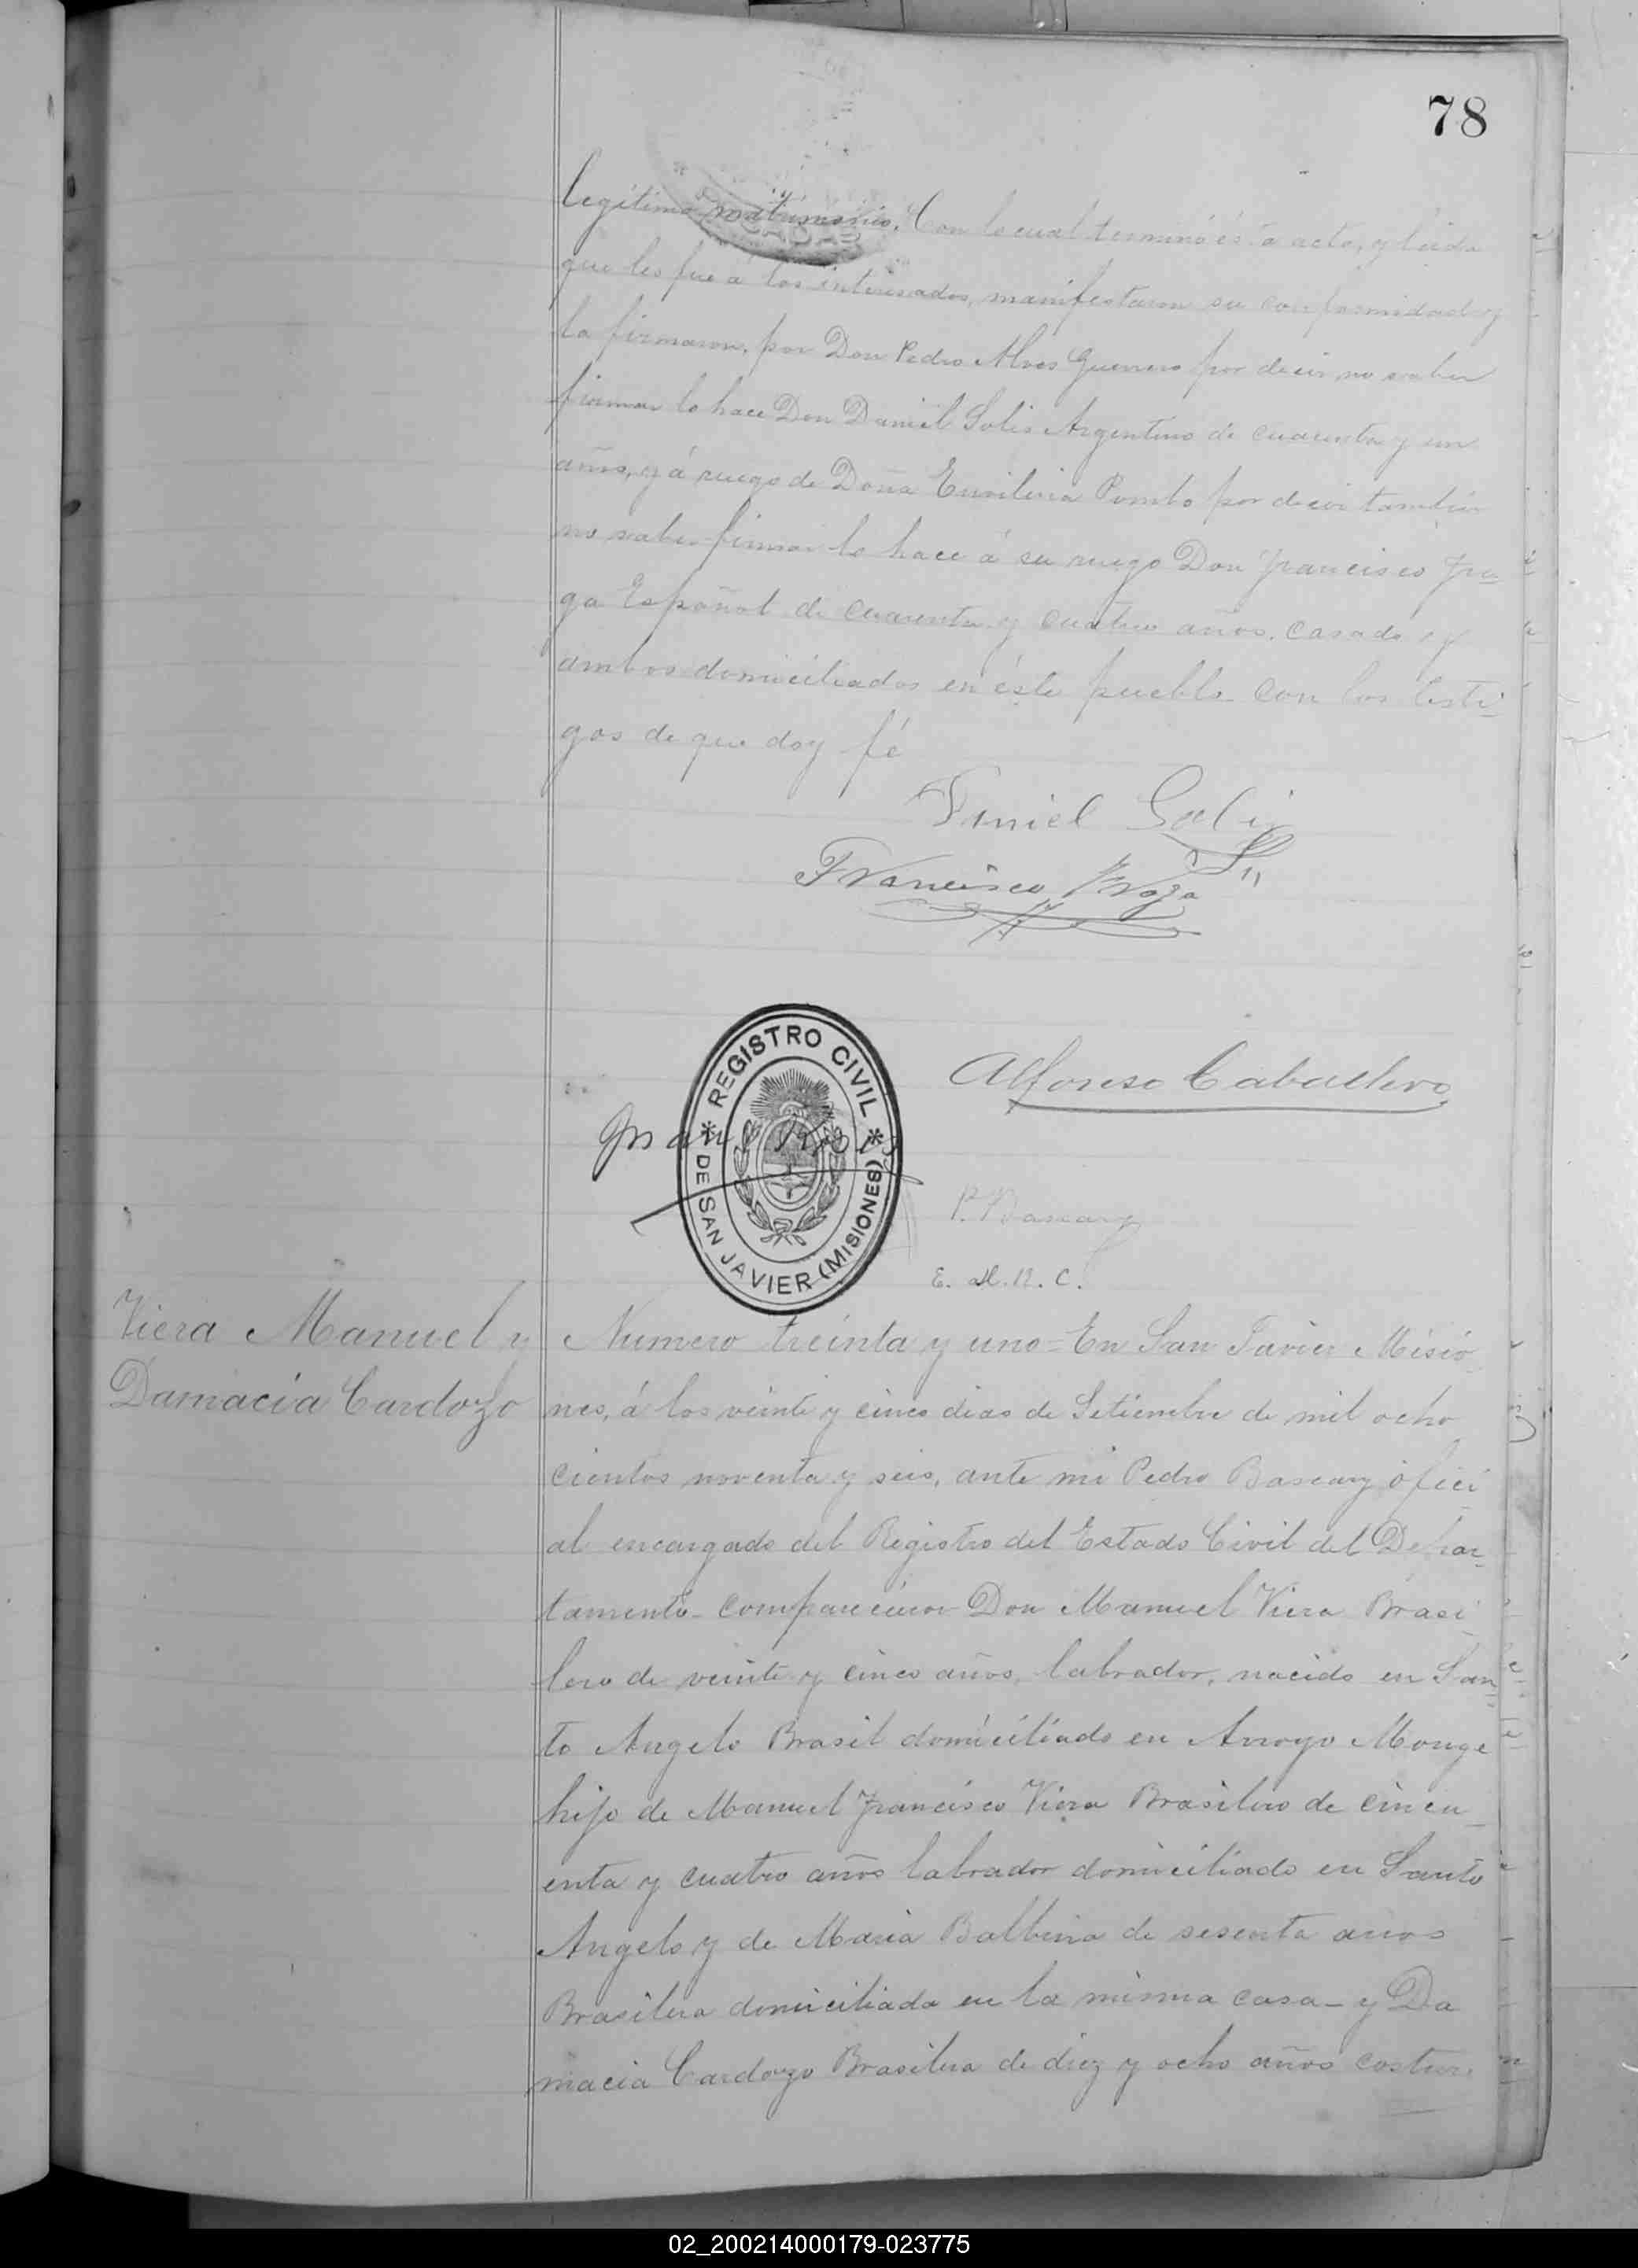 78
legitimo matrimonio. Con lo cual terminó ésta acta, y leida
que les fue á los interesados, manifestaron su conformidad y
la firmaron, por Don Pedro Alves Guerrero por decir no saber
firmar lo hace Don Daniel Solis Argentino de cuarenta y un
años, y á ruego de Doña Emiliana Pombo por decir tambien
no saber firmar lo hace á su ruego Don Francisco Fra_
ga Español de cuarenta y cuatro años, casado y
ambos domiciliados en éste pueblo con los testi_
gos de que doy fé
Daniel Solis
Francisco Fraga
REGISTRO CIVIL
DE SAN JAVIER (MISIONES)
Alfonso Caballero
Juan
P. Bascary
E. del R. C.
Viera Manuel y
Damacia Cardozo
Numero treinta y uno = En San Javier Misio_
nes, á los veinte y cinco dias de Setiembre de mil ocho
cientos noventa y seis, ante mi Pedro Bascary ofici_
al encargado del Registro del Estado Civil del Depar_
tamento comparecieron Don Manuel Viera Brasi_
lero de veinte y cinco años, labrador, nacido en San_
to Angelo Brasil domiciliado en Arroyo Monge
hijo de Manuel Francisco Viera Brasilero de cincu_
enta y cuatro años labrador domiciliado en Santo
Angelo y de Maria Balbina de sesenta anos
Brasilera domiciliada en la misma casa - y Da
macia Cardozo Brasilera de diez y ocho años costure
02_200214000179-023775